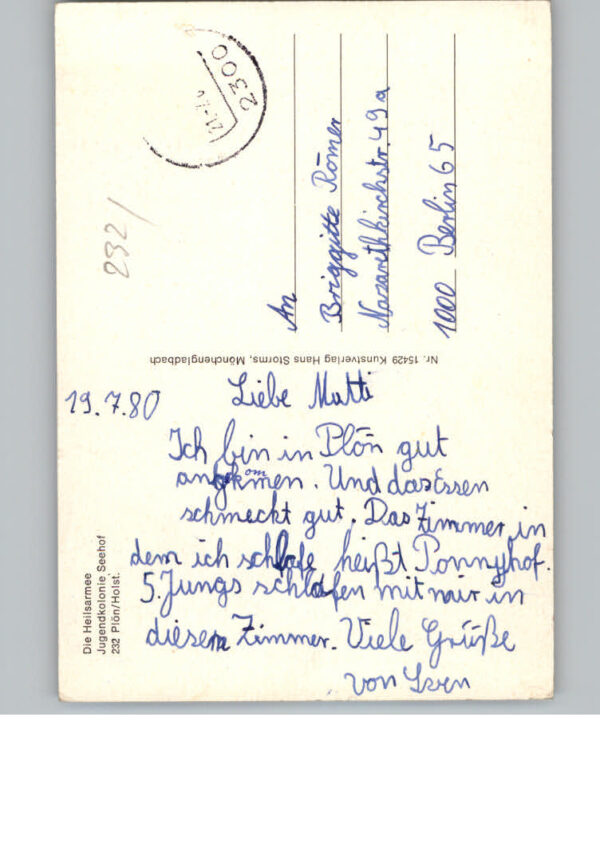 2300
21.-7.
232/
An
Briggitte Römer
Nazarethkirchstr. 49a
1000 Berlin 65
Nr. 15429 Kunstverlag Hans Storms, Mönchengladbach
19.7.80
Liebe Mutti
Ich bin in Plön gut
angekommen. Und das Essen
schmeckt gut. Das Zimmer in
dem ich schlafe heißt Ponnyhof.
5. Jungs schlafen mit mir in
diesem Zimmer. Viele Grüße
von Sven
Die Heilsarmee
Jugendkolonie Seehof
232 Plön/Holst.